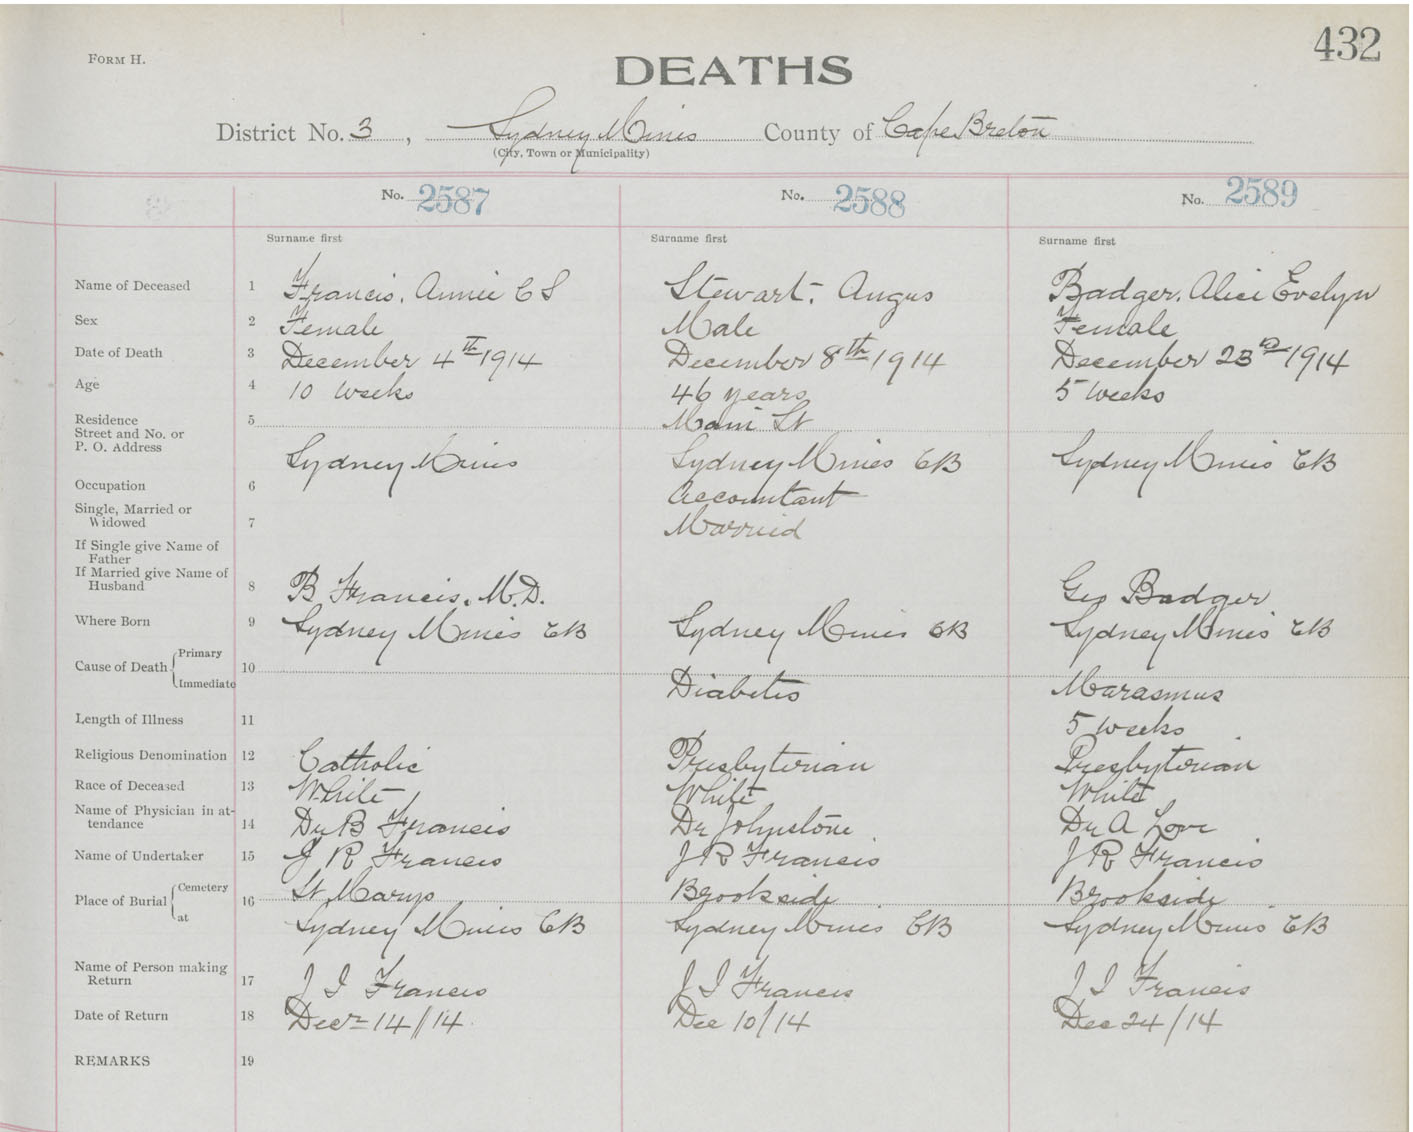 432
FORM H.
DEATHS
District No. 3, Sydney Mines County of Cape Breton
(City, Town or Municipality)
No. 2587 No. 2588 No. 2589
Surname first Surname first Surname first
Name of Deceased 1 Francis, Annie C S Stewart, Angus Badger, Alice Evelyn
Sex 2 Female Male Female
Date of Death 3 December 4th 1914 December 8th 1914 December 23rd 1914
Age 4 10 weeks 46 years 5 weeks
Residence 5 Main St
Street and No. or
P. O. Address Sydney Mines Sydney Mines CB Sydney Mines CB
Occupation 6 Accountant
Single, Married or
Widowed 7 Married
If Single give Name of
Father
If Married give Name of
Husband 8 B Francis, M.D. Geo Badger
Where Born 9 Sydney Mines CB Sydney Mines CB Sydney Mines CB
Cause of Death Primary 10
Immediate Diabetis Marasmus
Length of Illness 11 5 weeks
Religious Denomination 12 Catholic Presbyterian Presbyterian
Race of Deceased 13 White White White
Name of Physician in at-
tendance 14 Dr B Francis Dr Johnstone Dr A Love
Name of Undertaker 15 J R Francis J R Francis J R Francis
Place of Burial Cemetery 16 St Marys Brookside Brookside
at Sydney Mines CB Sydney Mines CB Sydney Mines CB
Name of Person making
Return 17 J I Francis J I Francis J I Francis
Date of Return 18 Decr 14/14 Dec 10/14 Dec 24/14
REMARKS 19